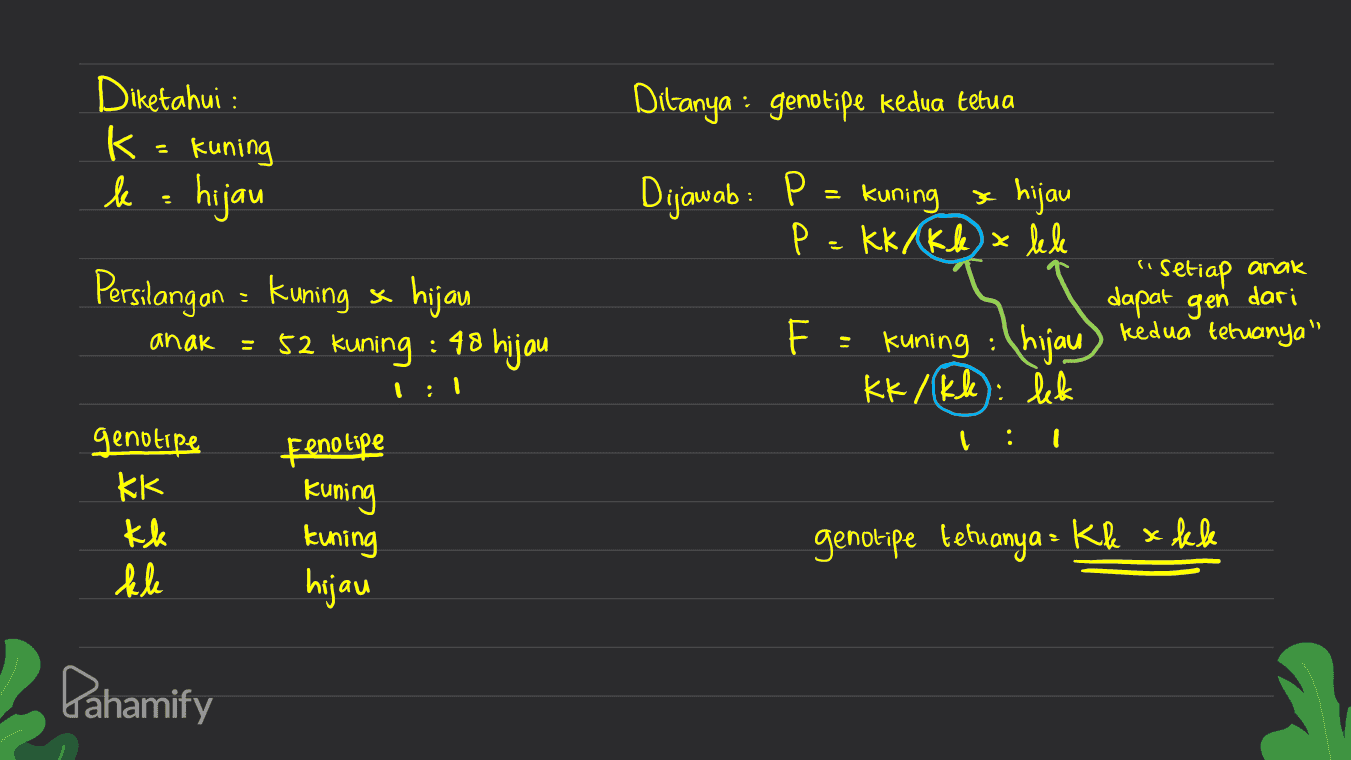 Diketahui :
K = kuning
k = hijau
Persilangan = kuning x hijau
anak = 52 kuning : 48 hijau
1 : 1
genotipe Fenotipe
KK kuning
Kk kuning
kk hijau
Ditanya : genotipe kedua tetua
Dijawab : P = kuning x hijau
P = KK/Kk x kk
"Setiap anak
dapat gen dari
kedua tetuanya"
F = kuning : hijau
KK/Kk : kk
1 : 1
genotipe tetuanya = Kk x kk
Pahamify